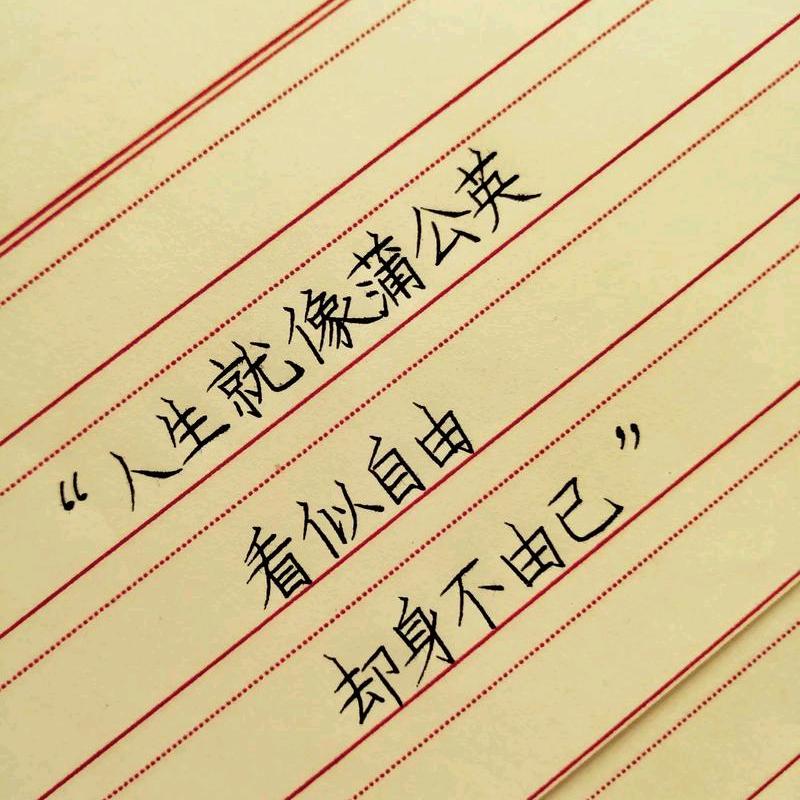 “人生就像蒲公英
看似自由
却身不由己”